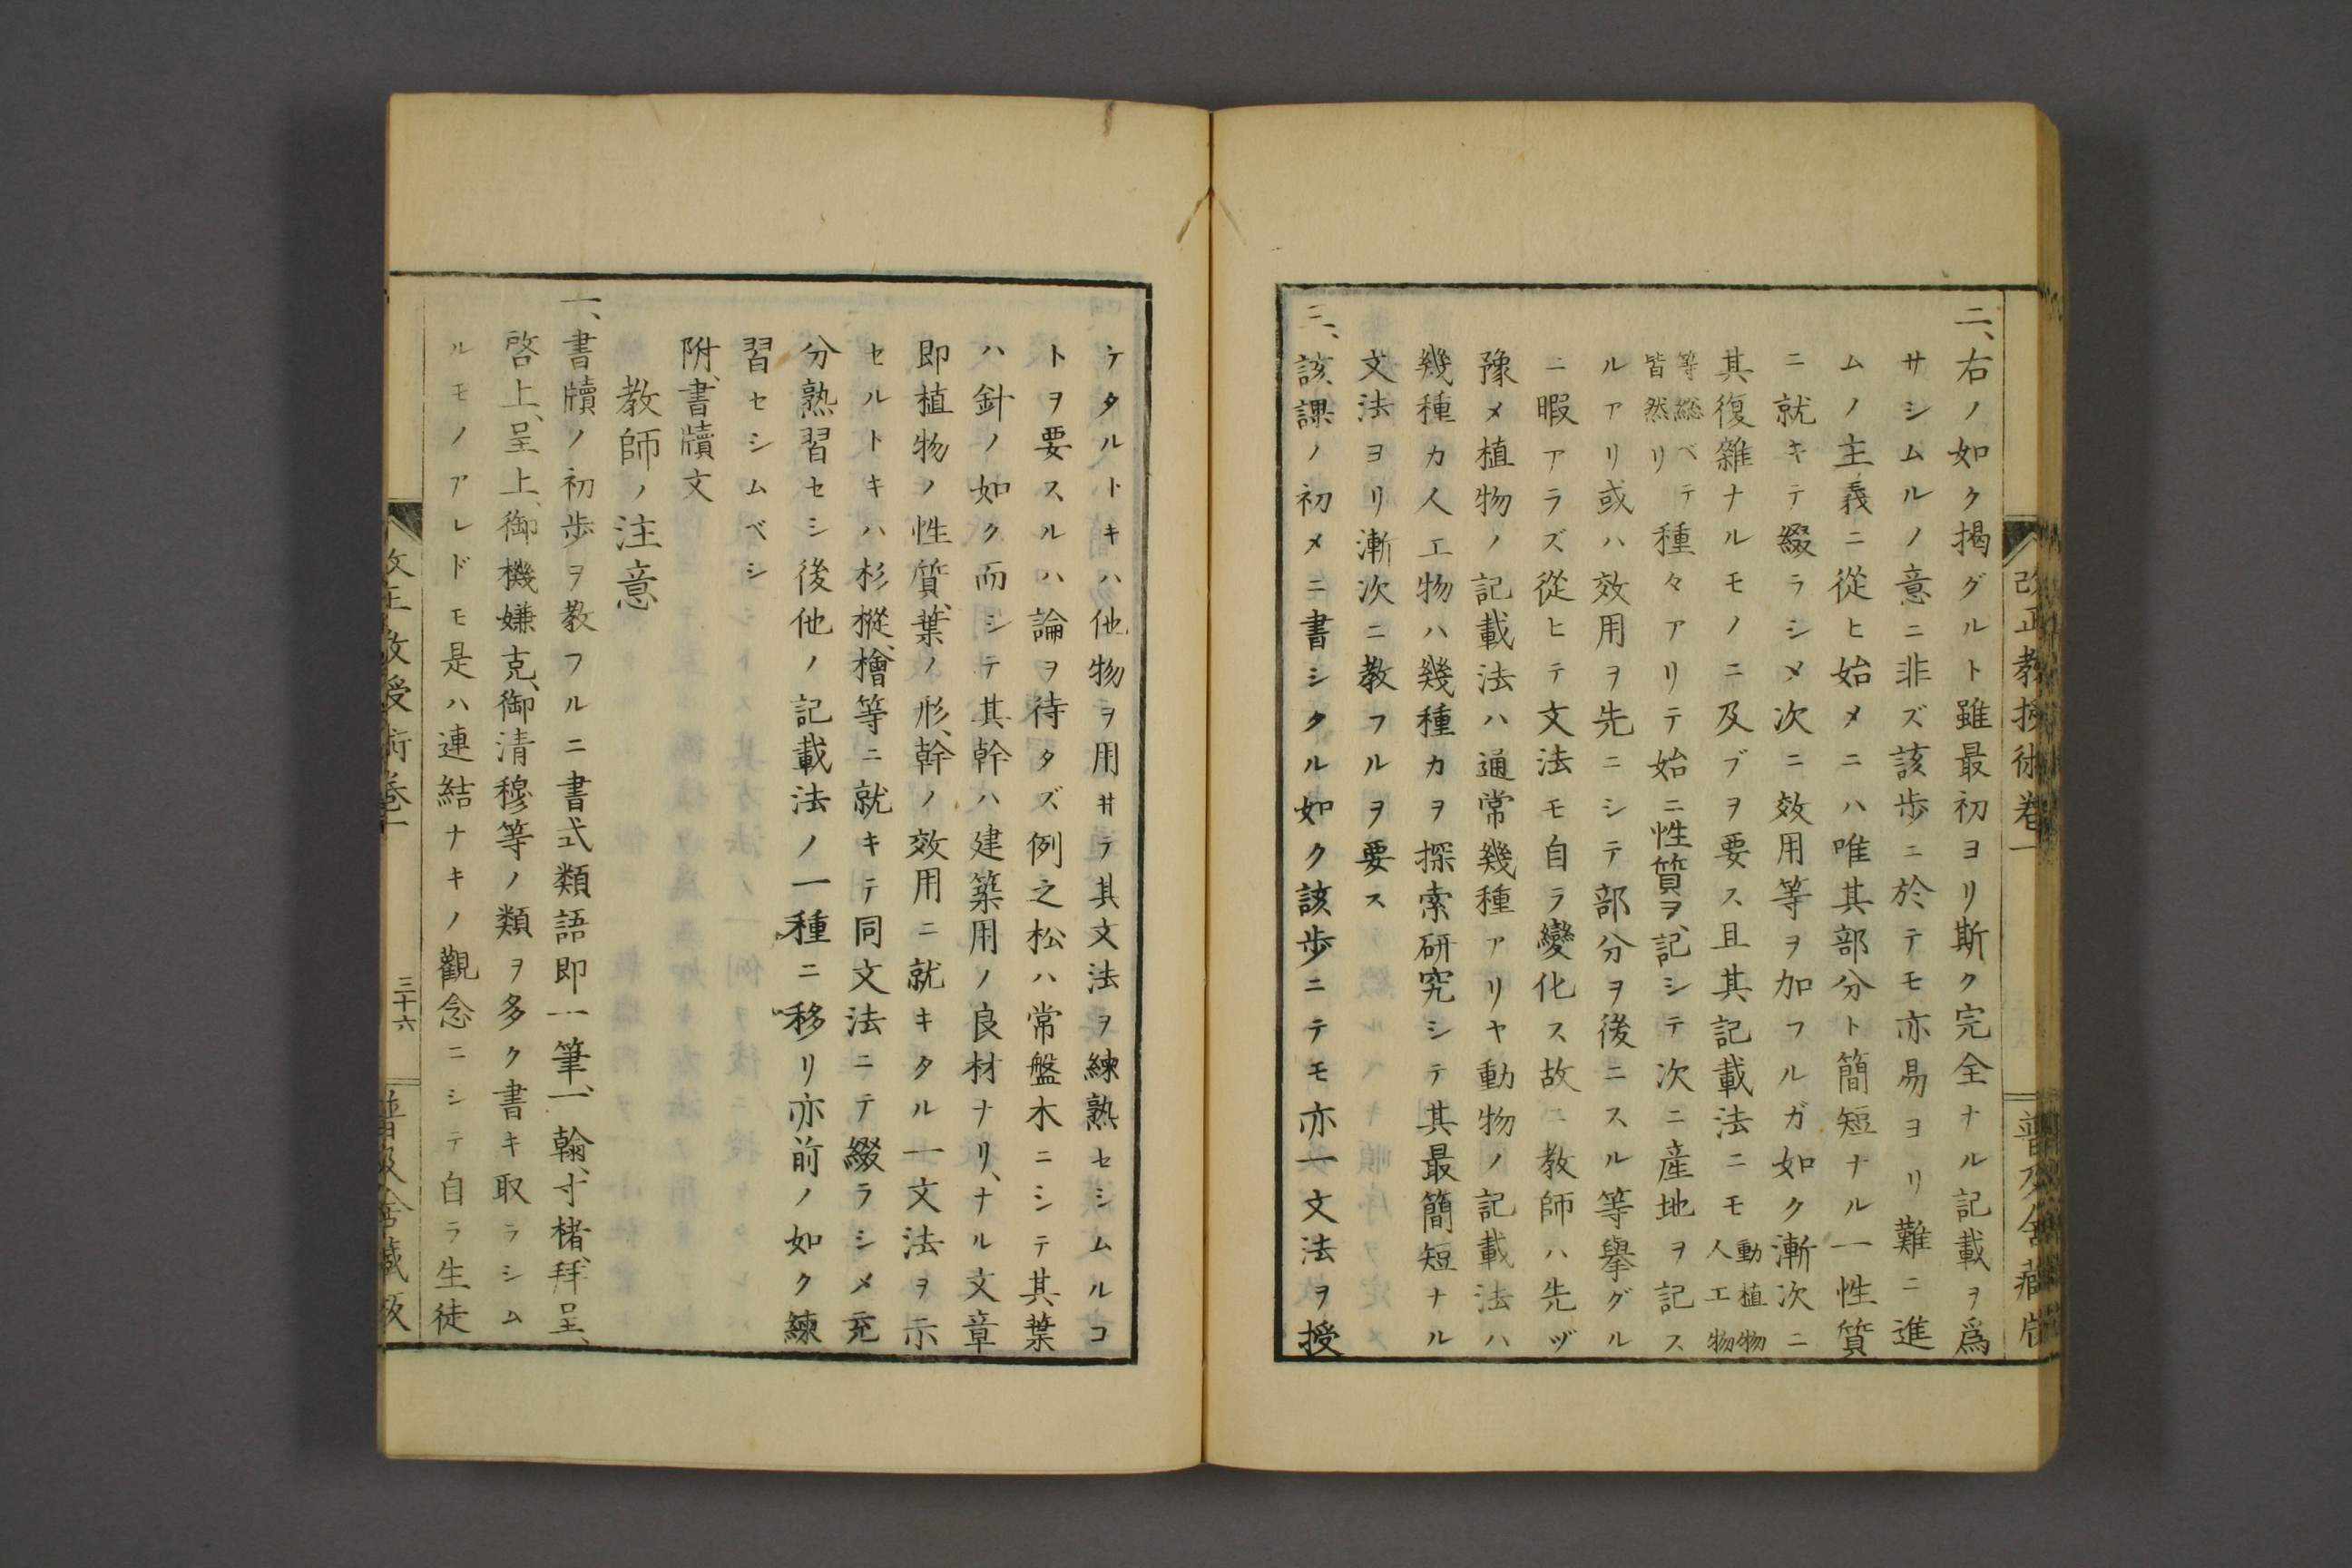 改正教授術卷一
普及舎藏
二、右ノ如ク掲グルト雖最初ヨリ斯ク完全ナル記載ヲ爲
サシムルノ意ニ非ズ該歩ニ於テモ亦易ヨリ難ニ進
ムノ主義ニ從ヒ始メニハ唯其部分ト簡短ナル一性質
ニ就キテ綴ラシメ次ニ效用等ヲ加フルガ如ク漸次ニ
其復雜ナルモノニ及ブヲ要ス且其記載法ニモ動植物人工物
等總ベテ皆然リ種々アリテ始ニ性質ヲ記シテ次ニ産地ヲ記ス
ルアリ或ハ效用ヲ先ニシテ部分ヲ後ニスル等擧グル
ニ暇アラズ從ヒテ文法モ自ラ變化ス故ニ教師ハ先ヅ
豫メ植物ノ記載法ハ通常幾種アリヤ動物ノ記載法ハ
幾種カ人工物ハ幾種カヲ探索研究シテ其最簡短ナル
文法ヨリ漸次ニ教フルヲ要ス
三、該課ノ初メニ書シタル如ク該歩ニテモ亦一文法ヲ授
ケタルトキハ他物ヲ用井テ其文法ヲ練熟セシムルコ
トヲ要スルハ論ヲ待タズ例之松ハ常盤木ニシテ其葉
ハ針ノ如ク而シテ其幹ハ建築用ノ良材ナリ、ナル文章
即植物ノ性質、葉ノ形、幹ノ效用ニ就キタル一文法ヲ示
セルトキハ杉樅、檜等ニ就キテ同文法ニテ綴ラシメ充
分熟習セシ後他ノ記載法ノ一種ニ移リ亦前ノ如ク練
習セシムベシ
附、書牘文
教師ノ注意
一、書牘ノ初歩ヲ教フルニ書式類語即一筆、一翰、寸楮、拜呈、
啓上、呈上、御機嫌克、御清穆等ノ類ヲ多ク書キ取ラシム
ルモノアレドモ是ハ連結ナキノ觀念ニシテ自ラ生徒
改正教授術卷一
三十六
普及舎藏版